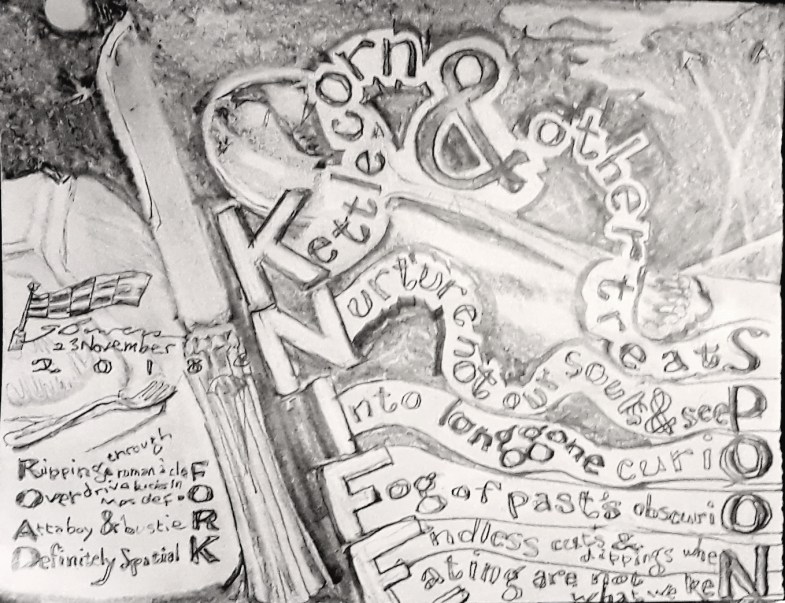 Kettlecorn & other treatS
Nurture not our souls & seeP
Into long gone curiO
Fog of past's obscuriO
Endless cuts & dippings wheN
Eating are not what we keN
23 November
2018
Ripping enough a roman à cleF
Overdrive kicks in mos def. O
Attaboy & bustieR
Definitely Spatial K